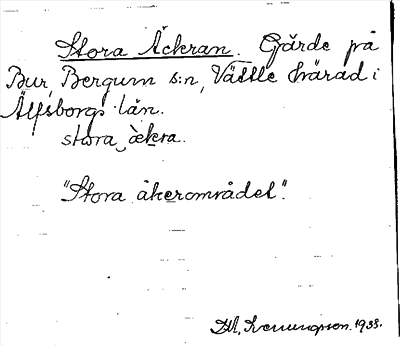 Stora Äckran. Gärde på
Bur, Bergum s:n, Vättle härad i
Älfsborgs län.
stora ˬækra.
"Stora åkerområdet".
1933.